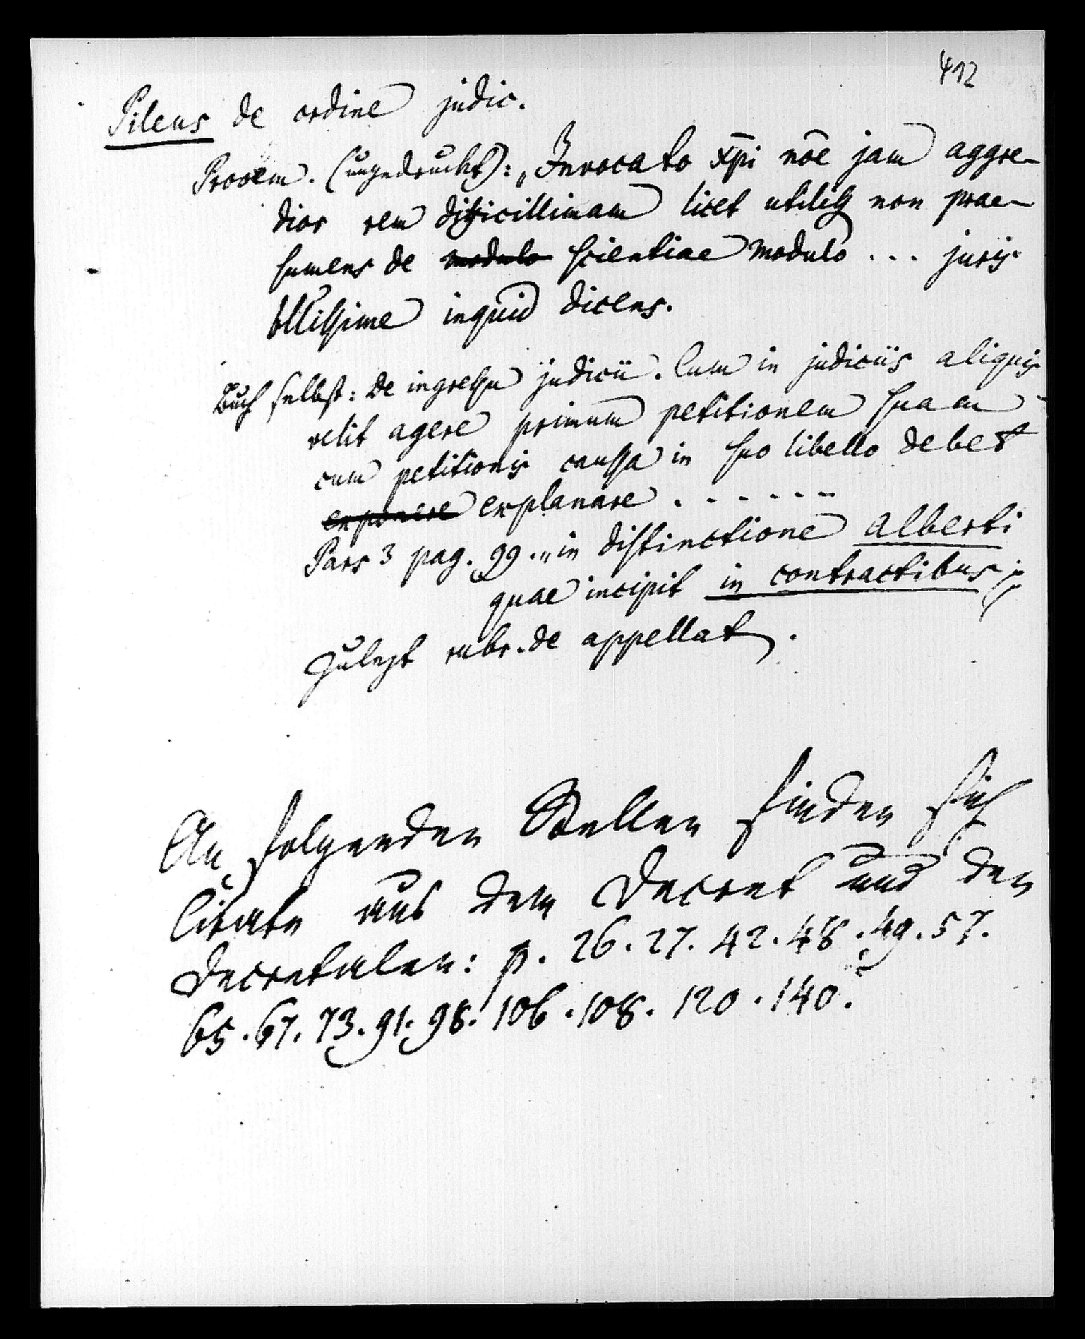 412
Pileus de ordine judic.
Prooem. (ungedruckt): „Invocato xp̄i nōe jam aggre-
dior rem difficillimam licet utilem non prae-
sumens de modulo scientiae modulo ... juris
bllissime inquid dicens.
Buch selbst: De ingressu judicii. Cum in judiciis aliquis
velit agere primum petitionem suam
cum petitionis caussa in suo libello debet
exponere explanare . - - - - - -
Pars 3 pag. 99. „in distinctione Alberti
quae incipit in contractibus
Zulezt rubr. de appellat.
An folgenden Stellen finden sich
Citate aus dem Decret und den
Decretalen: p. 26. 27. 42. 48. 49. 57.
65. 67. 73. 91. 98. 106. 108. 120. 140.